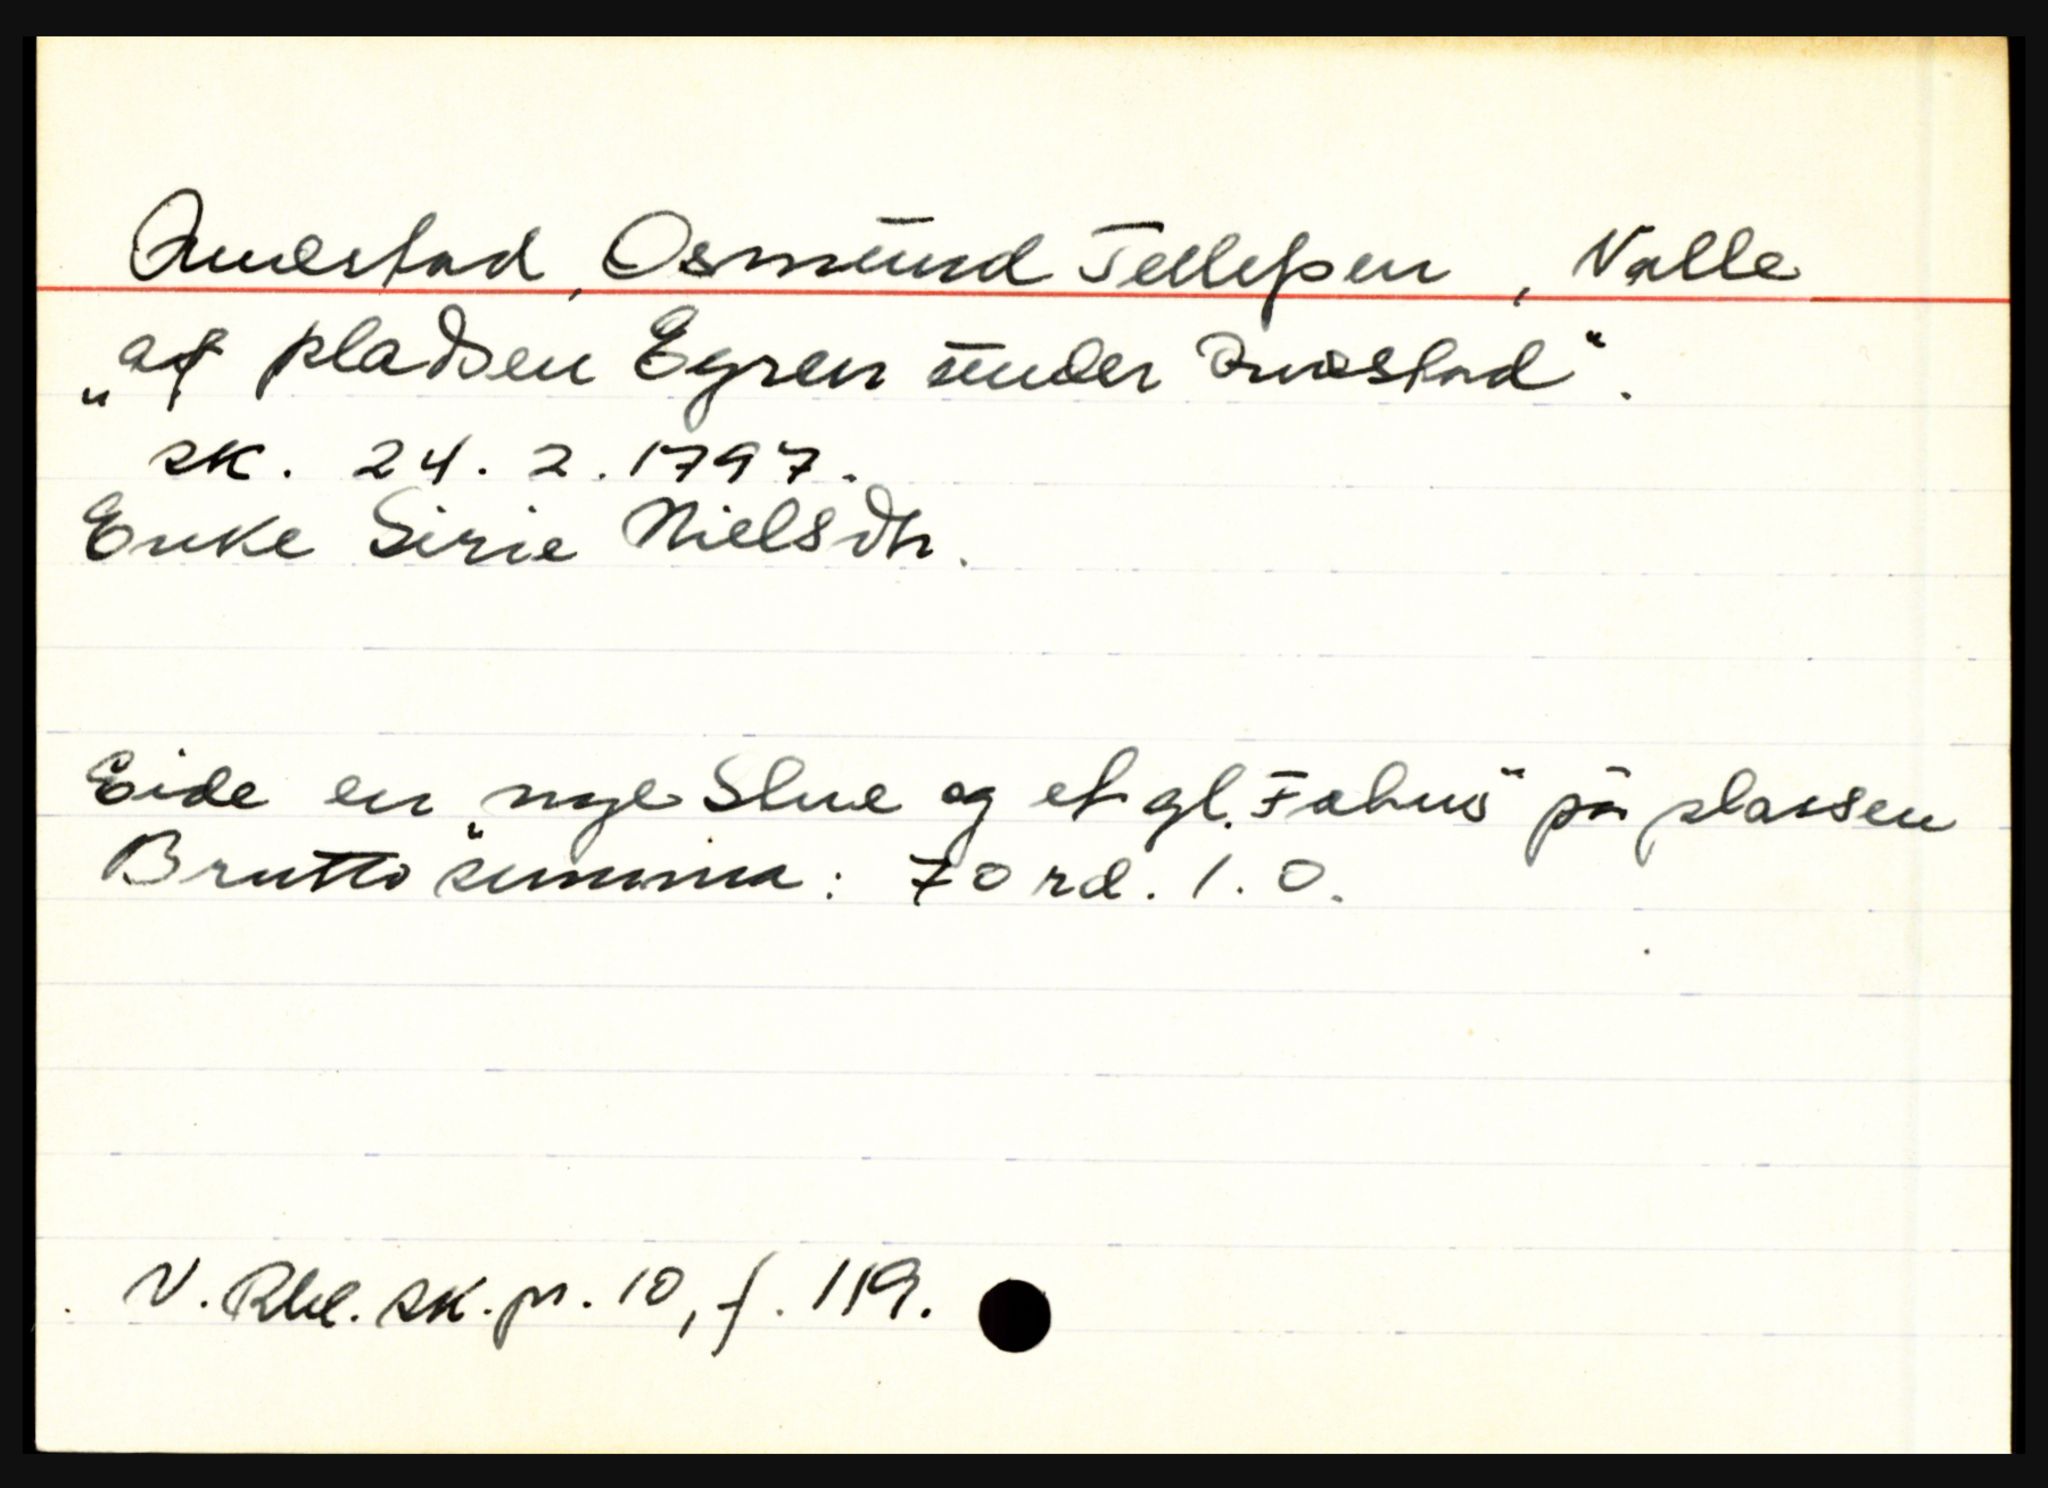 Quæstad, Osmund Tellefsen, Valle
"af pladsen Egren under Quæstad".
sk. 24. 2. 1797.
Enke Sirie Nielsdtr.
Eide en "nye Stue og et gl. Fæhus" på plassen
Brutto summa: 70 rd. 1. 0.
V. Rbl. sk. pr. 10, f. 119.